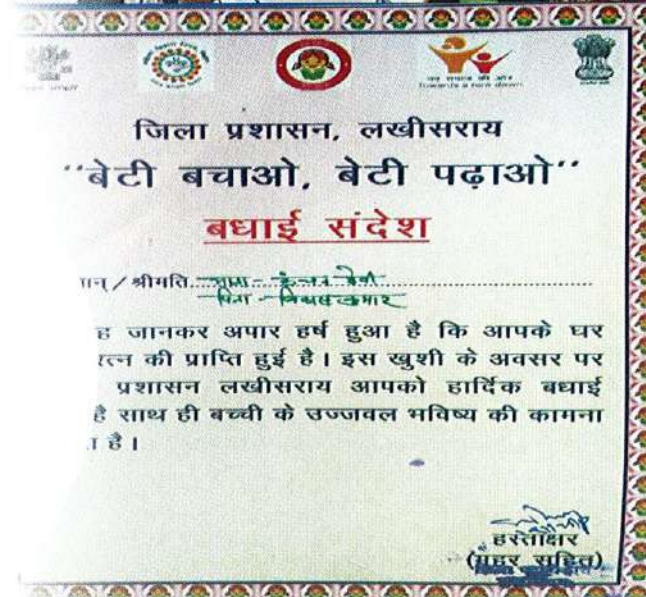 नव समाज की ओर
Towards a new dawn
जिला प्रशासन, लखीसराय
"बेटी बचाओ, बेटी पढ़ाओ"
बधाई संदेश
मान् / श्रीमति माता - देवी
पिता - कुमार
ह जानकर अपार हर्ष हुआ है कि आपके घर
रत्न की प्राप्ति हुई है। इस खुशी के अवसर पर
प्रशासन लखीसराय आपको हार्दिक बधाई
है साथ ही बच्ची के उज्जवल भविष्य की कामना
ा है।
हस्ताक्षर
(मुहर सहित)